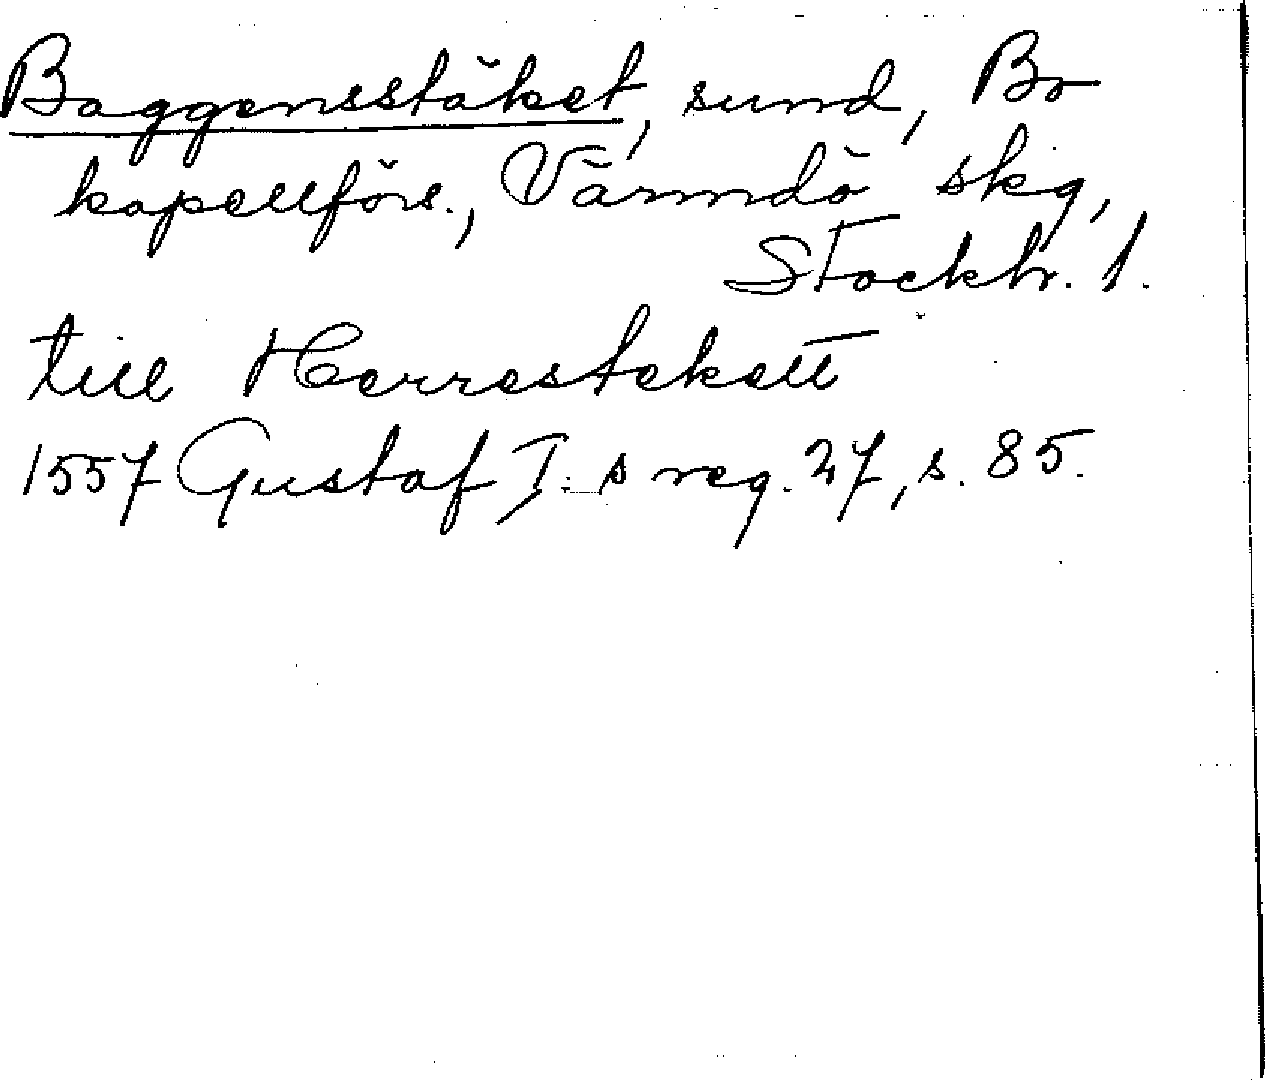 Baggensstäket, sund, Bo
kapellförs., Värmdö skg,
Stockh. l.
till Herrestekett
1557 Gustaf I:s reg. 27, s. 85.